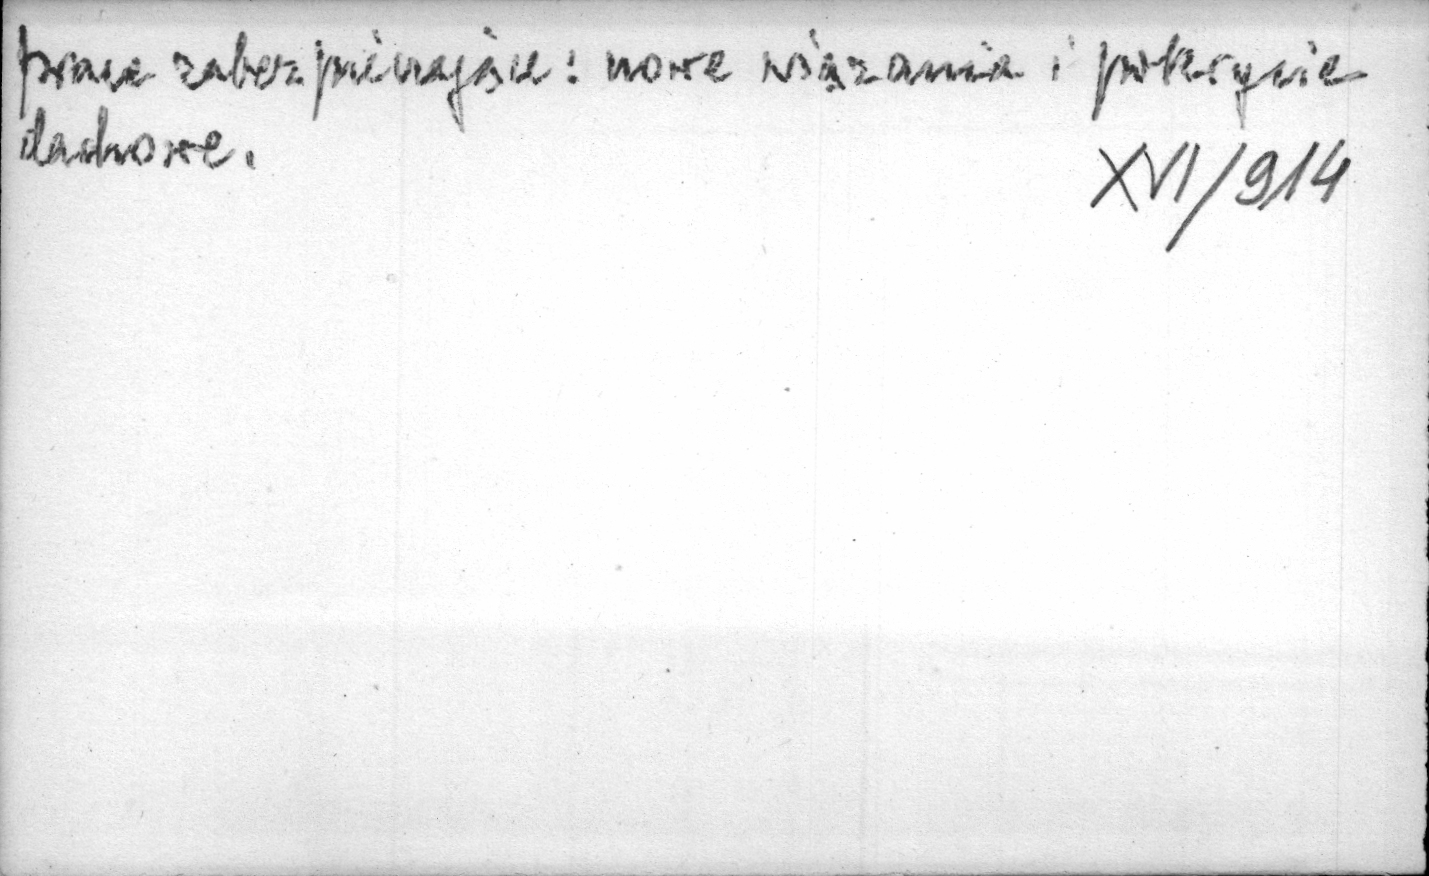 prace zabezpieczające: nowe wiązania i pokrycie
dachowe.
XVI/914